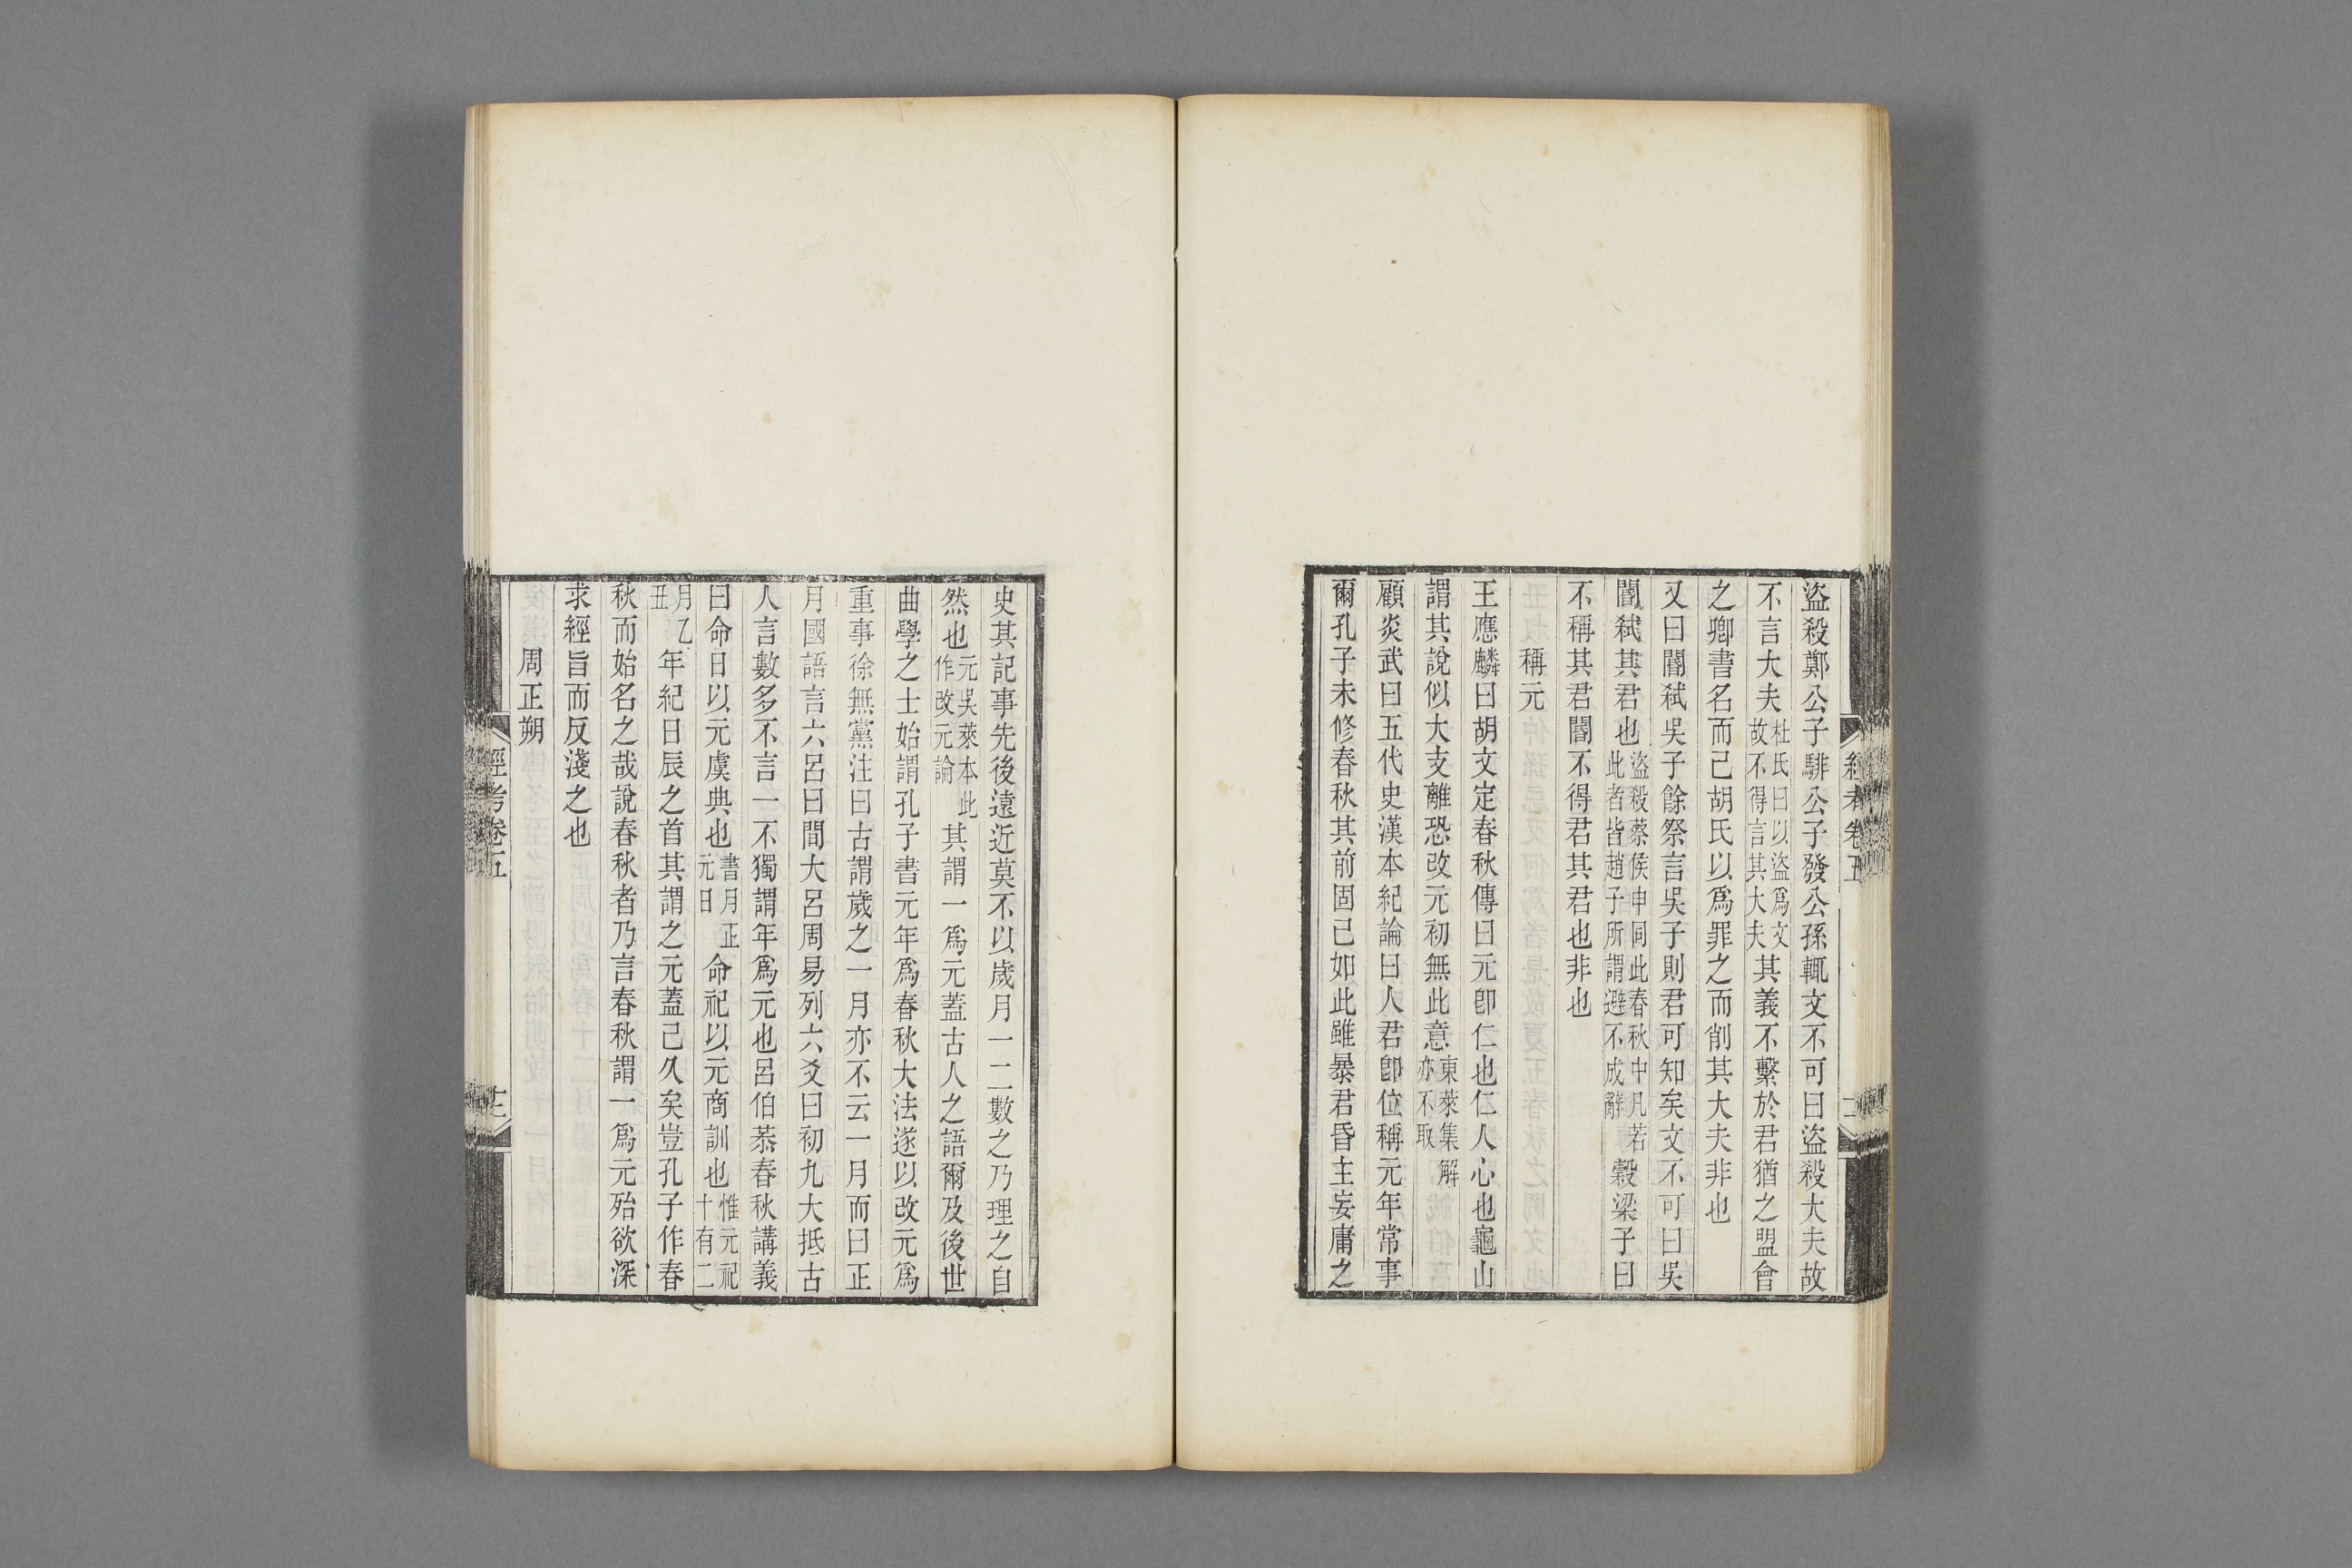 盜殺鄭公子騑公子發公孫輒文不可曰盜殺大夫故
不言大夫杜氏曰以盜爲文故不得言其大夫其義不繫於君猶之盟會
之卿書名而已胡氏以爲罪之而削其大夫非也
又曰閽弒吳子餘祭言吳子則君可知矣文不可曰吳
閽弒其君也盜殺蔡侯申同此春秋中凡若此者皆趙子所謂避不成辭穀梁子曰
不稱其君閽不得君其君也非也
稱元
王應麟曰胡文定春秋傳曰元卽仁也仁人心也龜山
謂其說似太支離恐改元初無此意東萊集解亦不取
顧炎武曰五代史漢本紀論曰人君卽位稱元年常事
爾孔子未修春秋其前固已如此雖暴君昏主妄庸之
經考卷五
史其記事先後遠近莫不以歲月一二數之乃理之自
然也元吳萊本此作改元論其謂一爲元蓋古人之語爾及後世
曲學之士始謂孔子書元年爲春秋大法遂以改元爲
重事徐無黨注曰古謂歲之一月亦不云一月而曰正
月國語言六呂曰間大呂周易列六爻曰初九大抵古
人言數多不言一不獨謂年爲元也呂伯恭春秋講義
曰命日以元虞典也書月正元日命祀以元商訓也惟元祀十有二
月乙丑年紀日辰之首其謂之元蓋已久矣豈孔子作春
秋而始名之哉說春秋者乃言春秋謂一爲元殆欲深
求經旨而反淺之也
周正朔
經考卷五